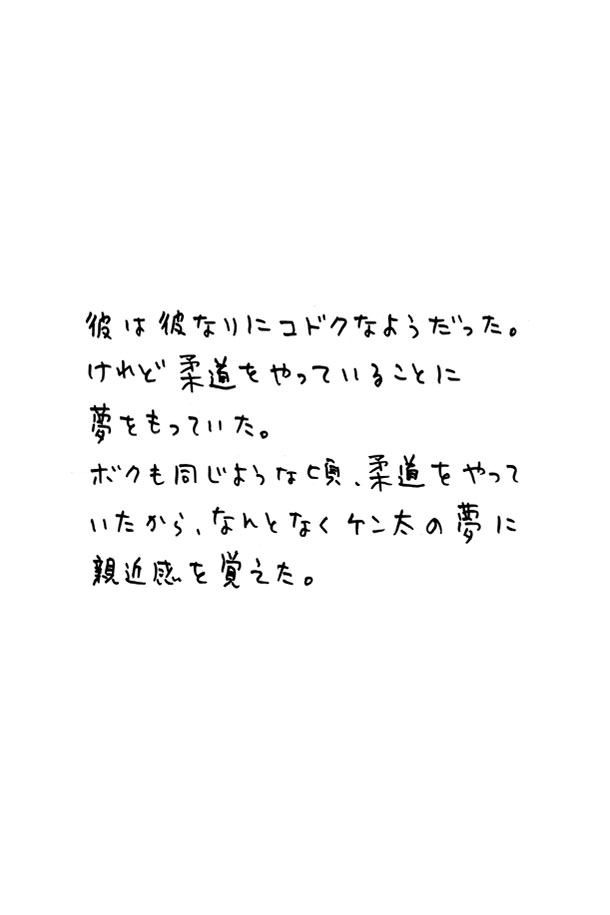 彼は彼なりにコドクなようだった。
けれど柔道をやっていることに
夢をもっていた。
ボクも同じような頃、柔道をやって
いたから、なんとなくケン太の夢に
親近感を覚えた。